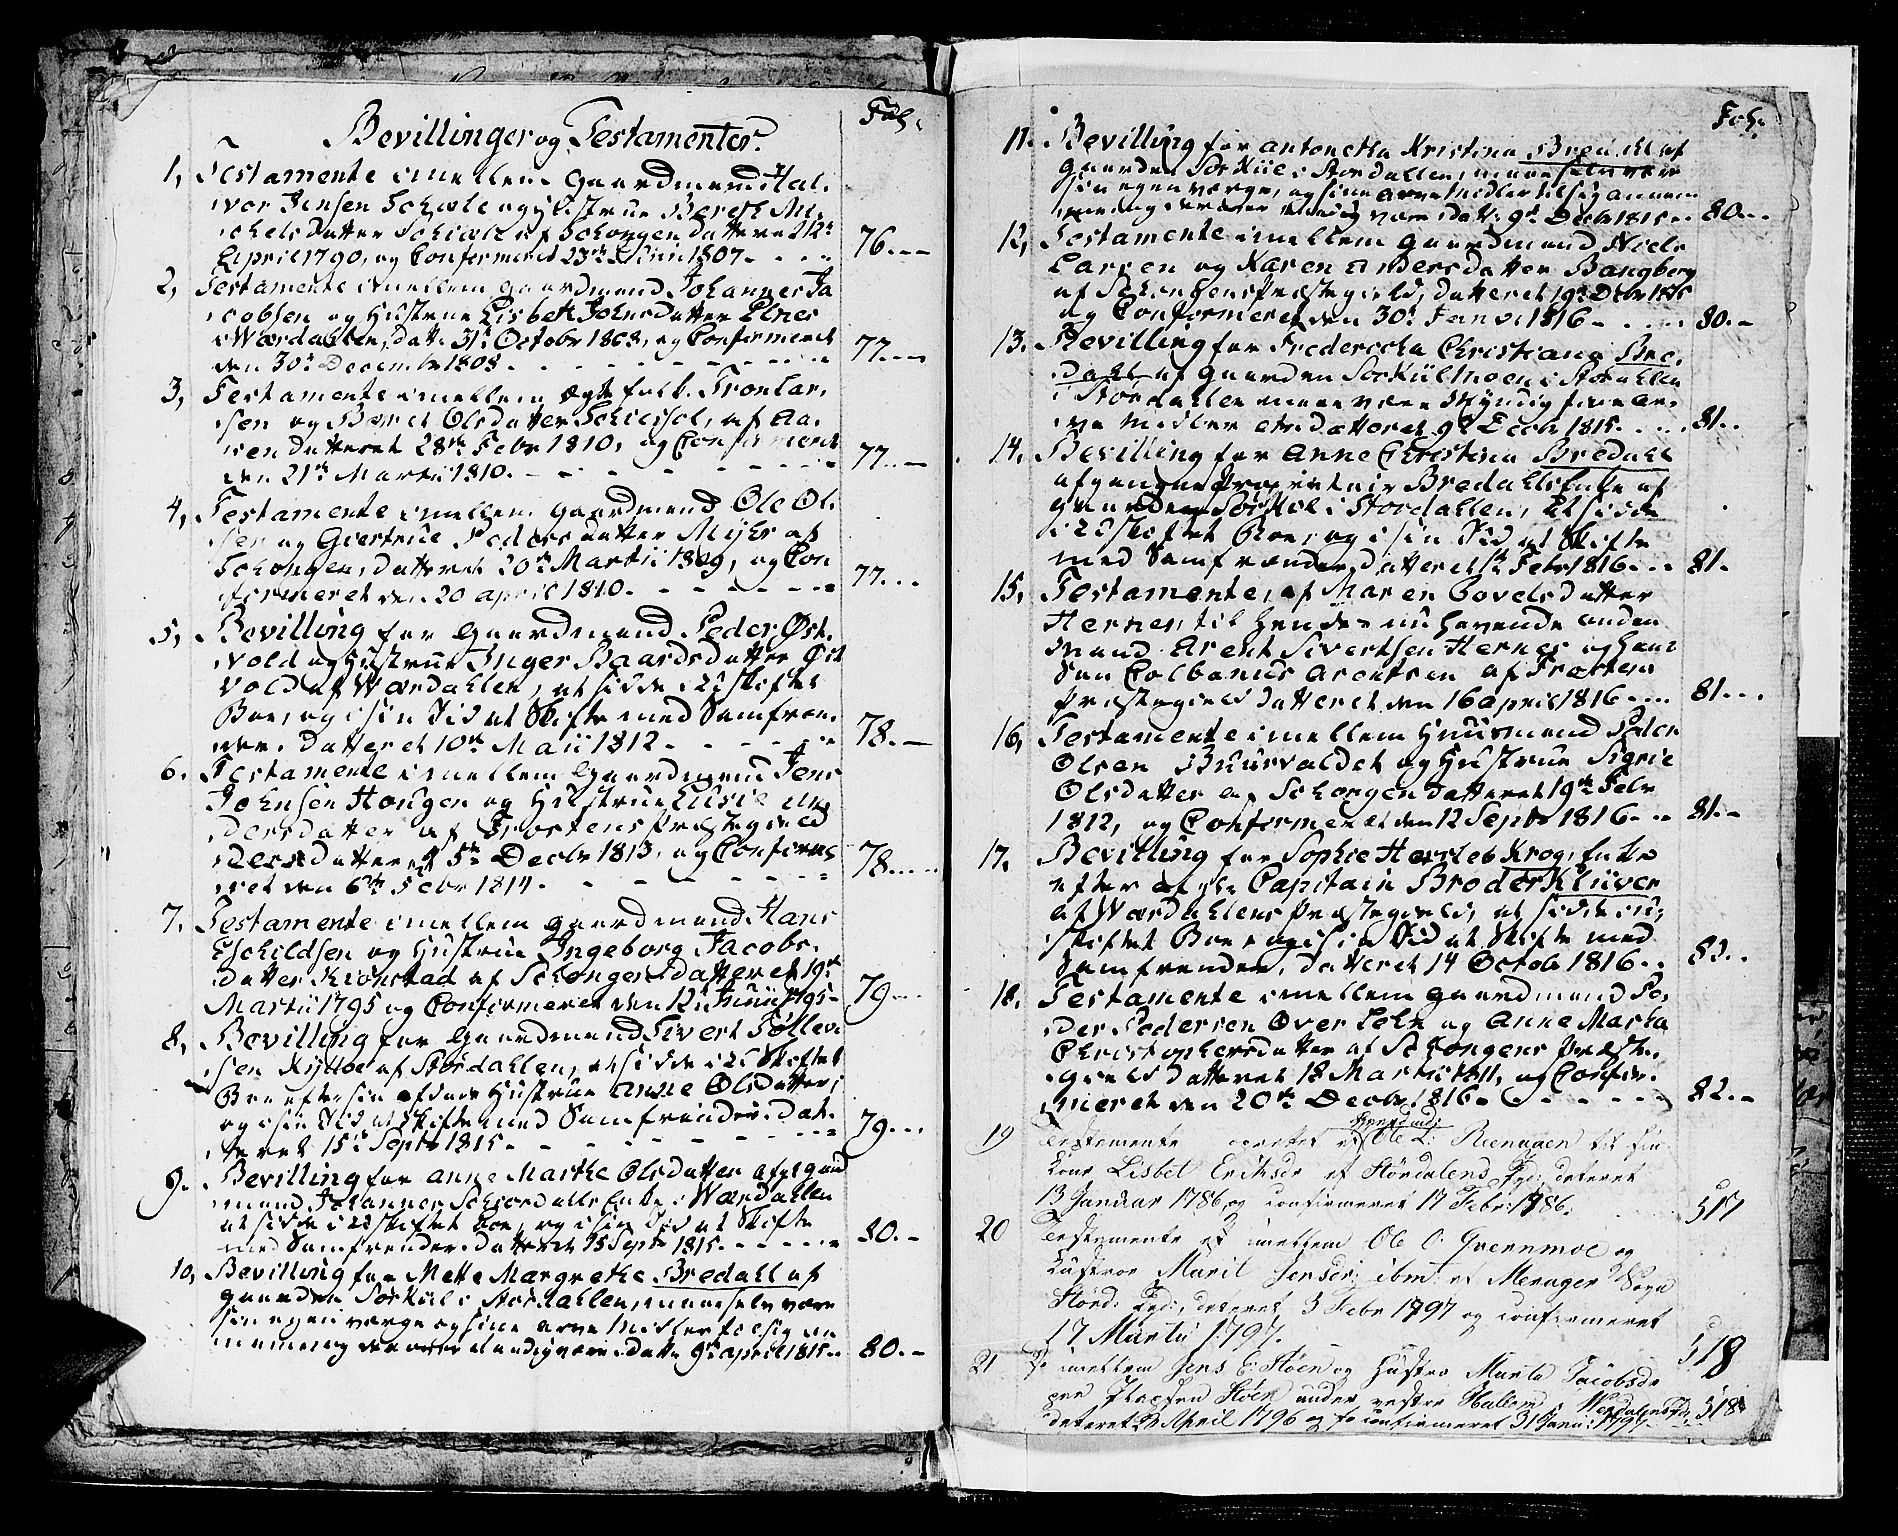 Bevillinger og Testamenter.
Fol:
1, Testamente imellem Gaardmand Hal,
vor Jensen Schiele og Hustrue Bereth Mi,
chelsdatter Schiele af Schongen datteret 12te
April 1790, og Confirmeret 23de Junii 1807. 76
2, Testamente imellem gaardmand Johannes Ja
cobsen og Hustrue Lisbeth Johnsdatter Elnes
i Wærdahlen, datt. 31te Octobr 1808, og Confirmeret
den 30te December 1808. 77
3, Testamente imellem Ægte folk. Tron Lar,
sen og Beret Olsdatter af Aa,
sen datteret 28de Febr 1810, og Confirmeret
den 21de Martii 1810. 77
4, Testamente imellem gaardmand Ole Ol,
sen og Giertrue Pedersdatter Myhr af
Schongen, datteret 20de Martii 1809, og Con
firmeret den 20 april 1810. 77
5, Bevilling for Gaardmand Peder Øst,
vold og Hustrue Inger Baardsdatter Øst
vold af Wærdahlen, at sidde i Uskiftet
Boe, og i sin Tid at Skifte med Samfræn
der. datteret 10de Maii 1812. 78
6. Testamente imellem Gaardmand Jens
Johnsen Hougen og Hustrue Lusie An,
dersdatter af Frostens Præstegield
datteret 5te Decbr 1813, og Confirme
ret den 6te Febr 1814. 78
7. Testamente imellem gaardmand Hans
Eschildsen og Hustrue Ingeborg Jacobs,
datter Krönstad af Schongen datteret 19de
Martii 1795 og Confirmeret den 12te Junii 1795 79
8, Bevilling for Gaardmand Sivert Tøllev
sen Rydtoe af Størdahlen, at sidde i Uskiftet
Boe efter sin afdøde Hustrue Anne Olsdatter,
og i sin Tid at skifte med Samfrænder. dat,
teret 15de Septb 1815. 79
9. Bevilling for Anne Marthe Olsdatter afg: gaard
mand Johannes Schiordahls Enke i Wærdahlen
at sidde i Uskiftet boe, og i sin Tid at Skifte
med Samfrender. datteret 15 Septr 1815. 80
10, Bevilling for Mette Margrethe Bredahl af
gaarden Sorkiil i Størdahlen, maae selv være
sin egen værge og sine arve Midler til sig an
namme og deraf raadig være. datt. 9de april 1815. 80
Fol:
11. Bevilling for Antonetha Kristina Bredahl af
gaarden Sorkiil i Størdallen, maae selv være
sin egen værge, og sine arve Midler til sig annam
me og deraf raadig være. datt. 9de Decbr 1815. 80
12, Testamente imellem gaardmand Niels
Larsen og Karen Andersdatter Bangberg
af Schongens Præstegield, datteret 19de Decbr 1815
og Confirmeret den 30te Januar 1816. 80
13. Bevilling for Fredericcha Christiana Bre,
dahl af gaarden Sorkiilmoen i Størdahlen
i Størdahlen maae være Myndig sine ar,
ve Midler etc. datteret 9de Decbr 1815. 81
14, Bevilling for Anne Christina Bredahl
afgangne Bredahls Enke af
gaarden Sorkiil i Størdallen, at sidde
i Uskiftet Boe, og i sin Tid at Skifte
med Samfrænder, datteret 1te Febr 1816. 81.
15, Testamente, af Maren Povelsdatter
Hernes, til Hendes nu havende anden
Mand Arent Sivertsen Hernes og hans
Søn Colbanus Arentsen af Frostens
Præstegield datteret den 16 april 1816. 81
16, Testamente imellem Huusmand Peder
Olsen Buurvaldet og Hustrue Sigrie
Olsdatter af Schongen datteret 19de Febr
1812, og Confirmeret den 12 Septr 1816. 81
17. Bevilling for Sophie Hersleb Krog, Enke
efter afg. Capitain Broder Klüver
af Wærdahlens Præstegield, at sidde i u,
skiftet Boe og i sin Tid at Skifte med
Samfrender, datteret 14 Octobr 1816. 82
18. Testamente imellem gaardmand Pe,
der Pedersen Over Tohn og Anne Marta
Christophersdatter af Schongens Præste,
gield datteret 18 Martii 1811, og Confir,
meret den 20de Decbr 1816. 82
19 Testamente oprettet af Ole L: Rienagen til sin
Kone Lisbet Eriksdr af Størdalens Fgd: dateret
13 Januar 1786, og confirmeret 17 Febr: 1786. 517
20 Testamente imellem Ole O: Qvernmoe og
Hustroe Marit Jensdr: ibm: af Meragers Sogn
Størd: Fgd:, dateret 3 Febr 1797 og confirmeret
17 Martii 1797. 518
21 Do imellem Jens E: Höen og Hustro Marta Jacobsdr
under vestre Hallem i Werdalens Fgd,
dateret 2 April 1796 og confirmeret 31 Janu: 1797. 518